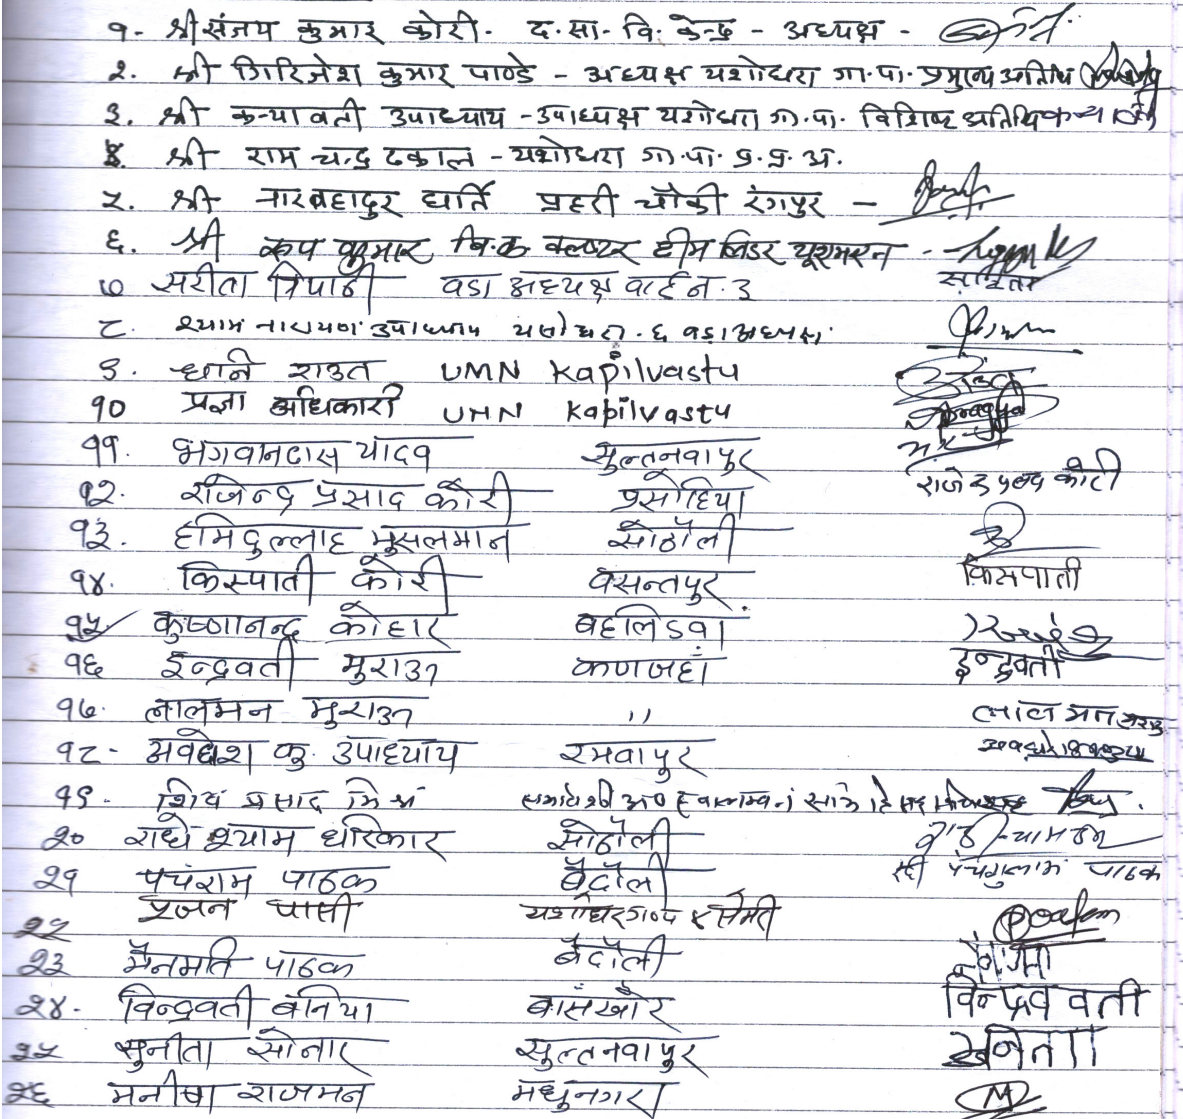 १- श्री संजय कुमार कोरी. द.सा.वि. केन्द्र - अध्यक्ष -
२. श्री गिरिजेश कुमार पाण्डे - अध्यक्ष यशोधरा गा.पा. प्रमुख अतिथि
३. श्री कन्यावती उपाध्याय - उपाध्यक्ष यशोधरा गा.पा. विशिष्ट अतिथि
४. श्री राम चन्द्र ढकाल - यशोधरा गा.पा. प्र.प्र.अ.
५. श्री नारबहादुर घर्ति प्रहरी चौकी रंगपुर -
६. श्री रूप कुमार बि.क क्लष्टर टीम लिडर यूएमएन -
७ सरीता त्रिपाठी वडा अध्यक्ष वार्ड न. ३ सरिता
८. श्याम नारायण उपाध्याय यसोधरा. ६ वडा अध्यक्ष.
९. धानि राउत UMN Kapilvastu
१० प्रज्ञा अधिकारी UMN Kapilvastu Pragya
११. भगवानदास यादव सुल्तनवापुर
१२. राजेन्द्र प्रसाद कोरी प्रसोहिया राजेन्द्र प्रसाद कोरी
१३. हमिदुल्लाह मुसलमान सोठौली
१४. किस्पाती कोरी वसन्तपुर किसपाती
१५ कृष्णानन्द्र कोहार बहलिडवा
१६ इन्द्रवती मुराउ कणजहाँ इन्द्रवती
१७. लालमन मुराउ ,, लालमन मुराउ
१८- अवधेश कु. उपाध्याय रमवापुर
१९. शिव प्रसाद मिश्र
२० राधे श्याम धरिकार सोठौली
२१ पचंराम पाठक बैदौली पाठक
२२ प्रजन पासी यशोधरा
२३ मैनमति पाठक बैदौली
२४. विन्द्रवती बनिया बासंखोर विन्द्रवती
२५ सुनीता सोनार सुल्तनवापुर
२६ मनीषा राजमन मधुनगरा